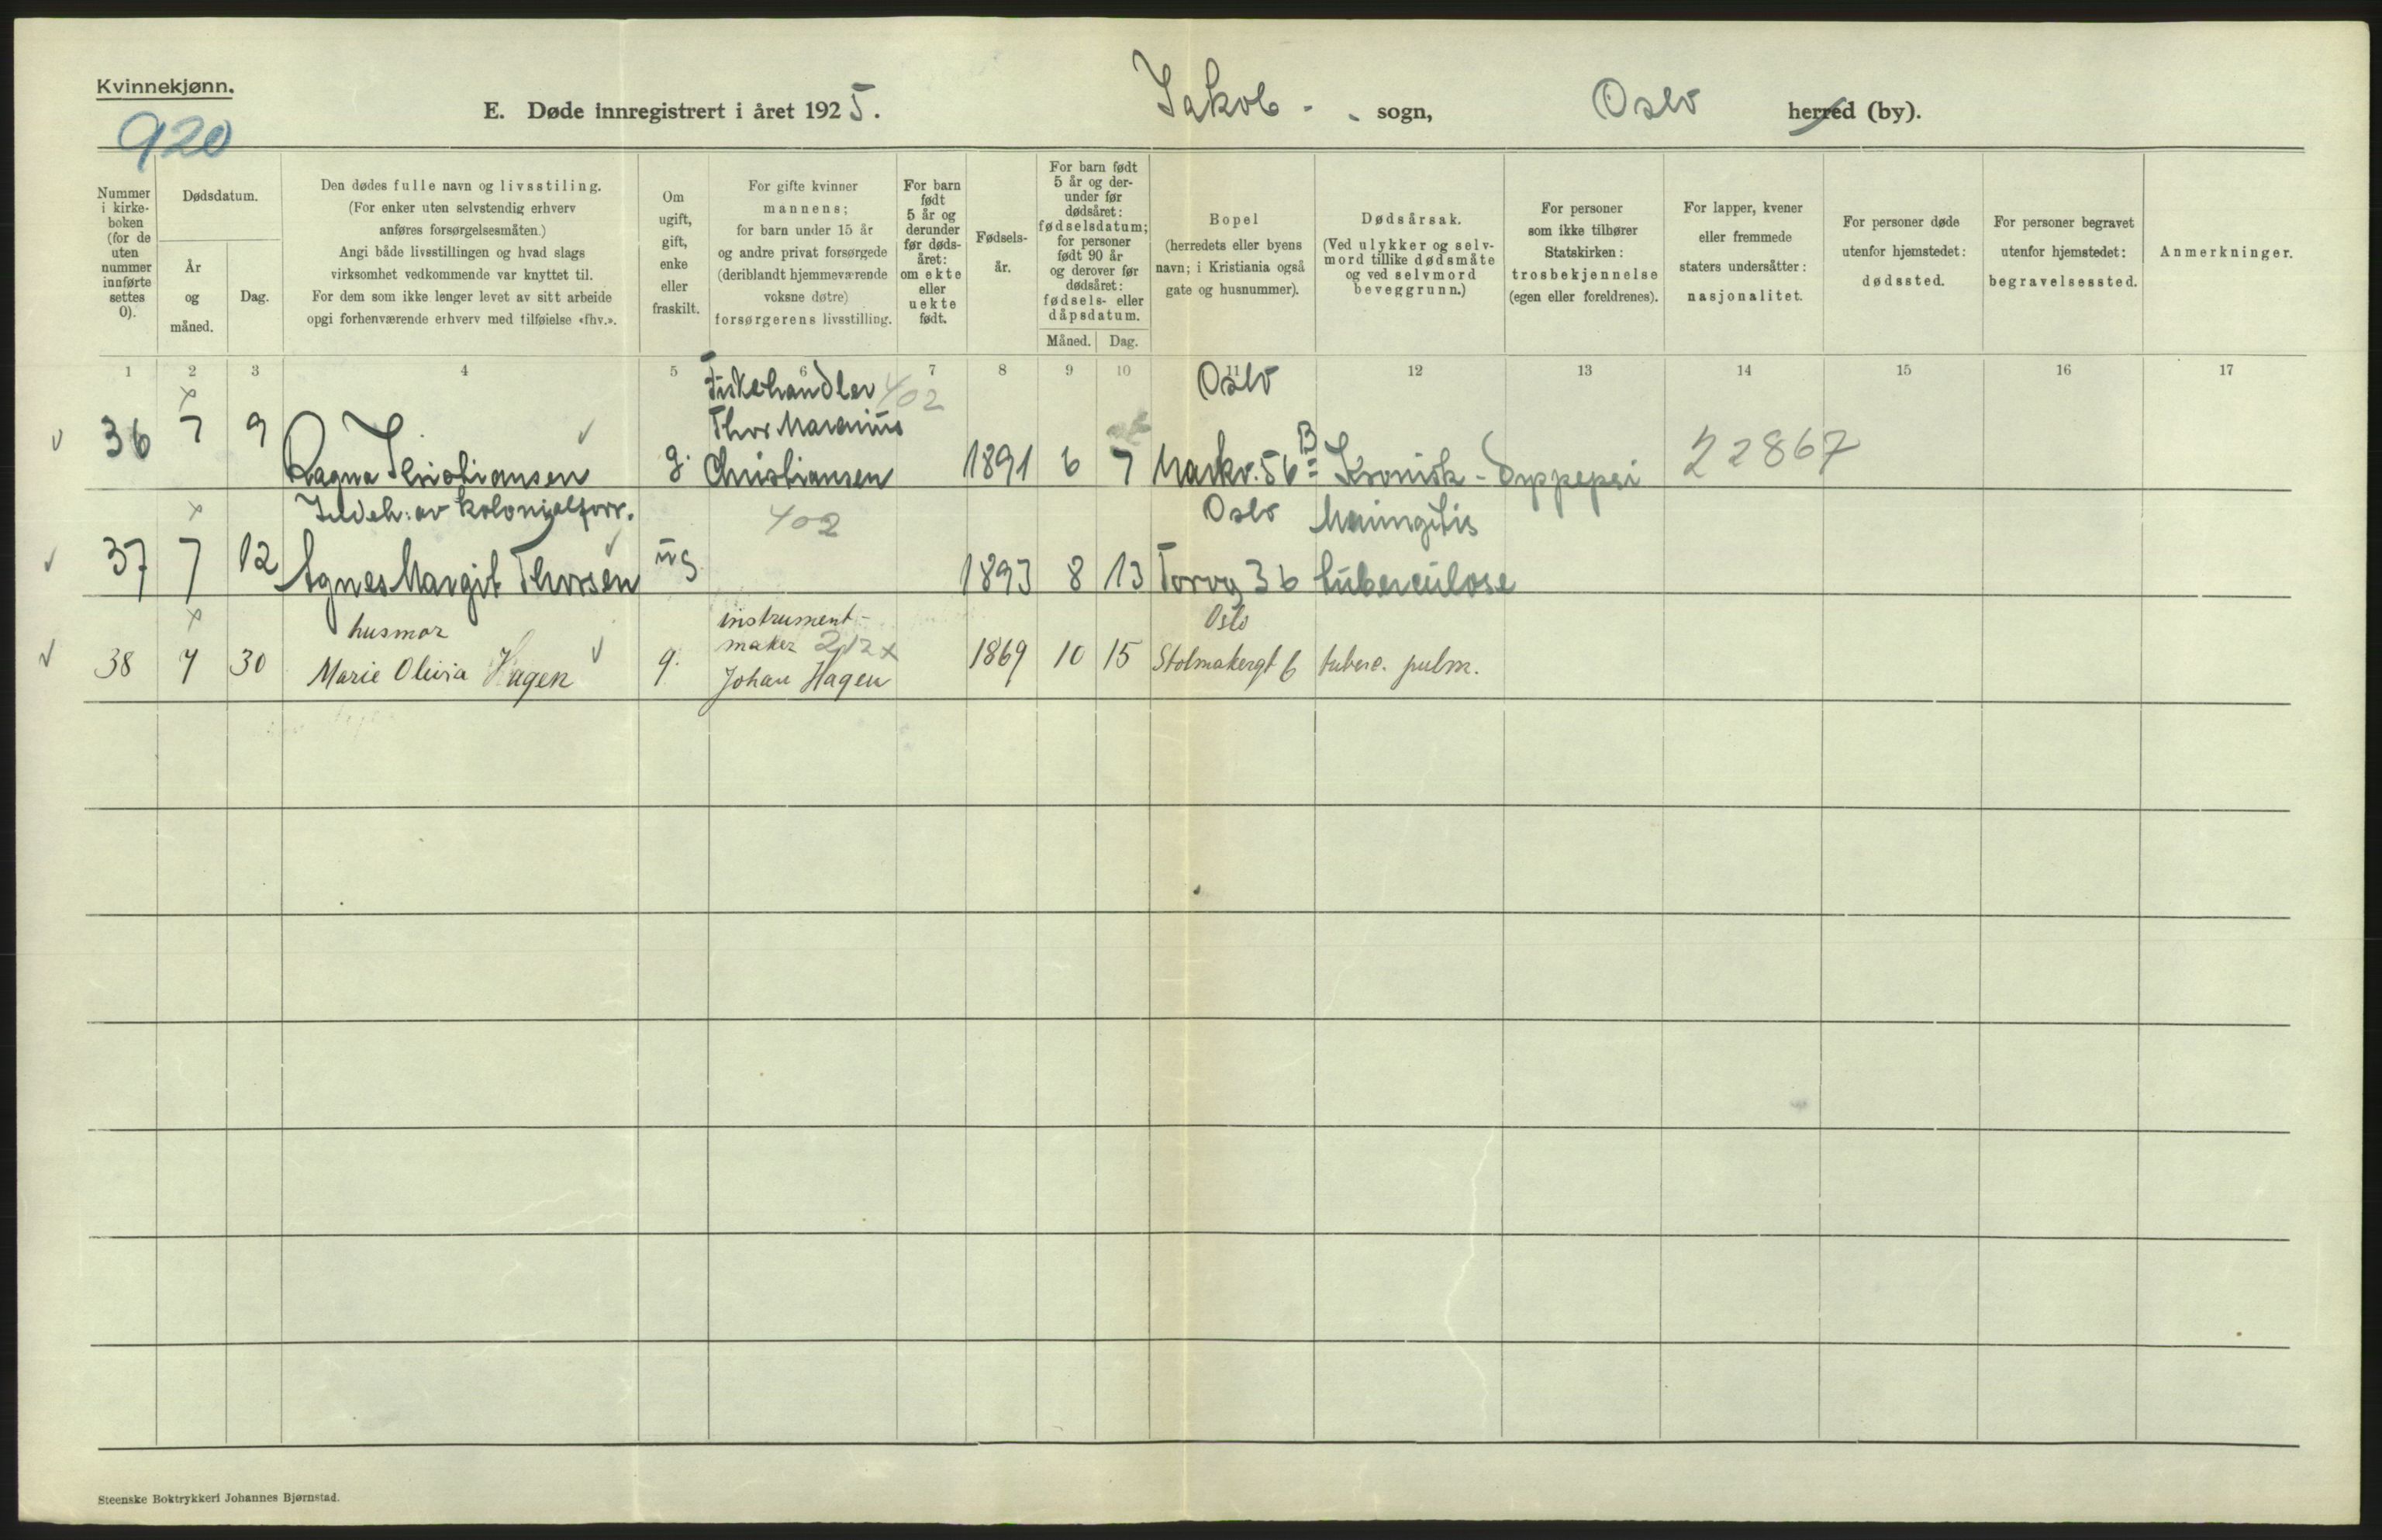 Kvinnekjønn.
920
E. Døde innregistrert i året 1925.
Jakob - sogn,
Oslo
herred (by).
Nummer i kirke-boken (for de uten nummer innførte settes 0).
Dødsdatum.
År og måned.
Dag.
Den dødes fulle navn og livsstiling.
(For enker uten selvstendig erhverv
anføres forsørgelsesmåten.)
Angi både livsstillingen og hvad slags
virksomhet vedkommende var knyttet til.
For dem som ikke lenger levet av sitt arbeide
opgi forhenværende erhverv med tilføielse «fhv.».
Om ugift, gift, enke eller fraskilt.
For gifte kvinner
mannens;
for barn under 15 år
og andre privat forsørgede
(deriblandt hjemmeværende
voksne døtre)
forsørgerens livsstilling.
For barn født 5 år og derunder før døds-året: om ekte eller uekte født.
Fødsels-år.
For barn født 5 år og der-under før dødsåret: fødselsdatum; for personer født 90 år og derover før dødsåret: fødsels- eller dåpsdatum.
Måned.
Dag.
Bopel
(herredets eller byens
navn; i Kristiania også
gate og husnummer).
Dødsårsak.
(Ved ulykker og selv-
mord tillike dødsmåte
og ved selvmord
beveggrunn.)
For personer
som ikke tilhører
Statskirken:
trosbekjennelse
(egen eller foreldrenes).
For lapper, kvener
eller fremmede
staters undersåtter:
nasjonalitet.
For personer døde
utenfor hjemstedet:
dødssted.
For personer begravet
utenfor hjemstedet:
begravelsessted.
Anmerkninger.
1 2 3 4 5 6 7 8 9 10 11 12 13 14 15 16 17
Fiskehandler 402
Oslo
Thor Marinius
36 7 9 Ragna Christiansen g. Christiansen 1891 6 7 Markv. 56 B Kronisk - Dyppepsi 22867
Indeh. av kolonialforr. 402 Oslo Meningitis
37 7 12 Agnes Margit Thorsen ug 1893 8 13 Torvg 3b tuberculose
husmor instrument- Oslo
maker 212 x
38 7 30 Marie Olivia Hagen g. Johan Hagen 1869 10 15 Stolmakergt 6 tuberc. pulm.
Steenske Boktrykkeri Johannes Bjørnstad.